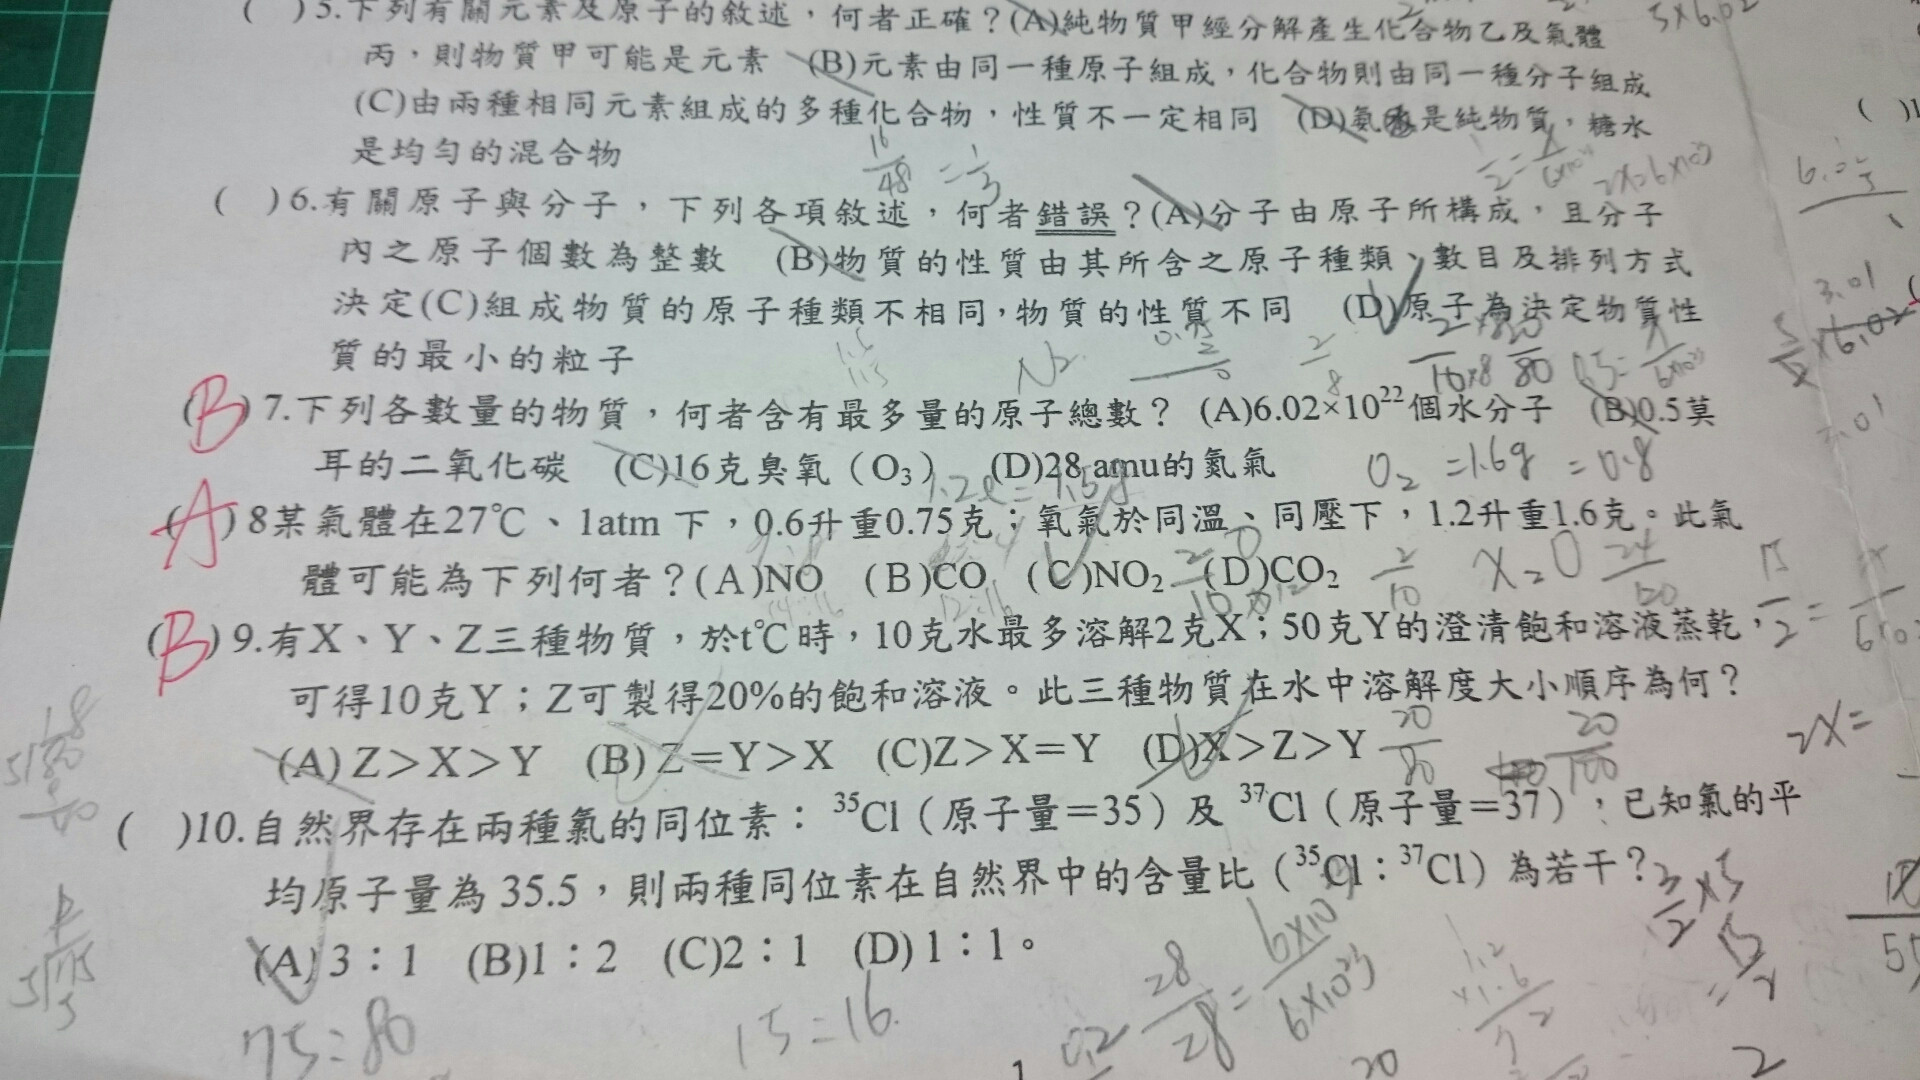 ( )5.下列有關元素及原子的敘述，何者正確？(A)純物質甲經分解產生化合物乙及氣體
丙，則物質甲可能是元素 (B)元素由同一種原子組成，化合物則由同一種分子組成
(C)由兩種相同元素組成的多種化合物，性質不一定相同 (D)氨是純物質，糖水
是均勻的混合物
16/48 = 1/3
( )6.有關原子與分子，下列各項敘述，何者錯誤？(A)分子由原子所構成，且分子
內之原子個數為整數 (B)物質的性質由其所含之原子種類、數目及排列方式
決定(C)組成物質的原子種類不相同，物質的性質不同 (D)原子為決定物質性
質的最小的粒子
N2
(B)7.下列各數量的物質，何者含有最多量的原子總數？ (A)6.02×10²²個水分子 (B)0.5莫
耳的二氧化碳 (C)16克臭氧（O₃） (D)28 amu的氮氣
O2 =1.6g =0.8
(A)8某氣體在27℃、1atm 下，0.6升重0.75克；氧氣於同溫、同壓下，1.2升重1.6克。此氣
體可能為下列何者？(A)NO (B)CO (C)NO₂ (D)CO₂
(B)9.有X、Y、Z三種物質，於t℃時，10克水最多溶解2克X；50克Y的澄清飽和溶液蒸乾，
可得10克Y；Z可製得20%的飽和溶液。此三種物質在水中溶解度大小順序為何？
(A) Z＞X＞Y (B) Z＝Y＞X (C)Z＞X＝Y (D)X＞Z＞Y
20/80 20/100
2X=
( )10.自然界存在兩種氯的同位素：³⁵Cl（原子量＝35）及 ³⁷Cl（原子量＝37），已知氯的平
均原子量為 35.5，則兩種同位素在自然界中的含量比（³⁵Cl：³⁷Cl）為若干？
(A) 3：1 (B)1：2 (C)2：1 (D) 1：1。
75=80
15=16
28/28 = 6×10²³/6×10²³